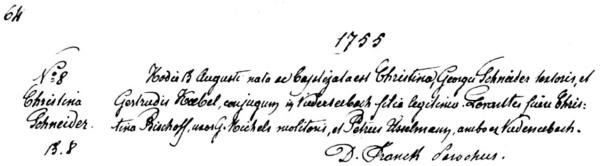 64
1755
No 8
Christina
Schneider.
13.8
Hodie 13 Augusti nata ac baptizata est Christina, Georgii Schneider textoris, et
Gertrudis Koebel, conjugum in Niederseelbach filia legitima. Levantes fuere Chris-
tina Bischoff, uxor G. Michels molitoris, et Petrus Usselmann, ambo ex Niederseelbach.
D. Franck Parochus.